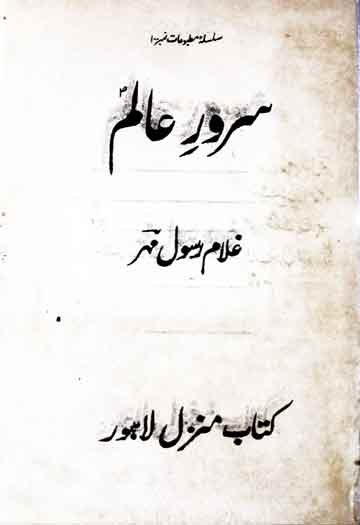 سلسلۂ مطبوعات نمبر ۱
سرورِ عالم ؐ
غلام رسول مہر
کتاب منزل لاہور